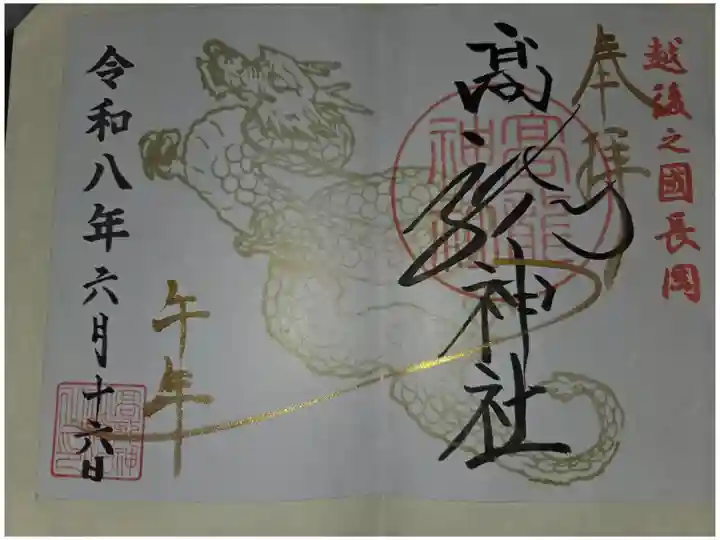 越後之國長岡
奉拝
高龍神社
高龍神社
午年
令和八年六月十六日